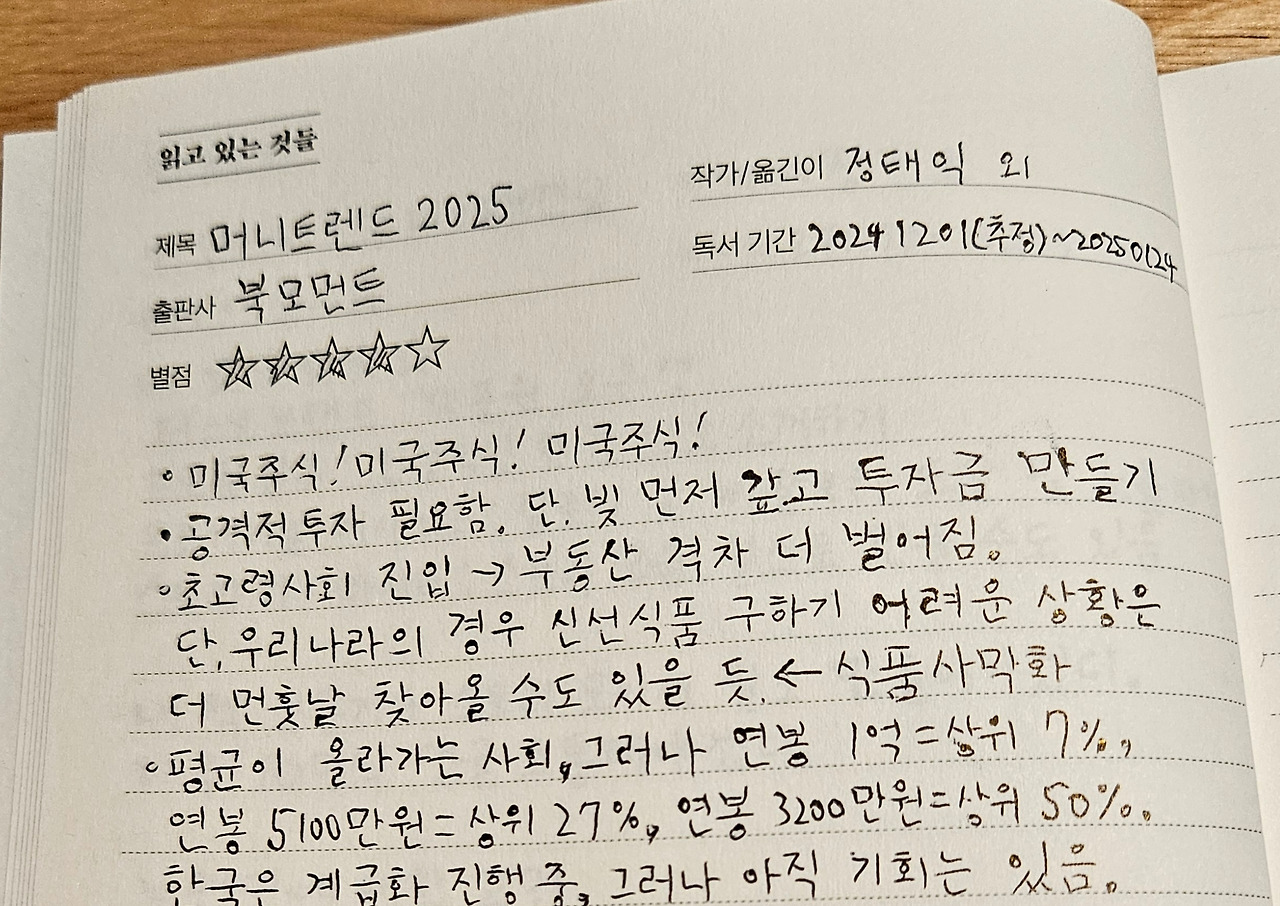 읽고 있는 것들
제목 머니트렌드 2025
작가/옮긴이 정태익 외
출판사 북모먼트
독서 기간 20241201(추정)~20250124
별점 ★★★★☆
• 미국주식! 미국주식! 미국주식!
• 공격적 투자 필요함. 단. 빚 먼저 갚고 투자금 만들기
• 초고령사회 진입 → 부동산 격차 더 벌어짐.
단, 우리나라의 경우 신선식품 구하기 어려운 상황은
더 먼훗날 찾아올 수도 있을 듯. ← 식품사막화
• 평균이 올라가는 사회, 그러나 연봉 1억 = 상위 7%,
연봉 5100만원 = 상위 27%, 연봉 3200만원 = 상위 50%.
한국은 계급화 진행 중, 그러나 아직 기회는 있음.